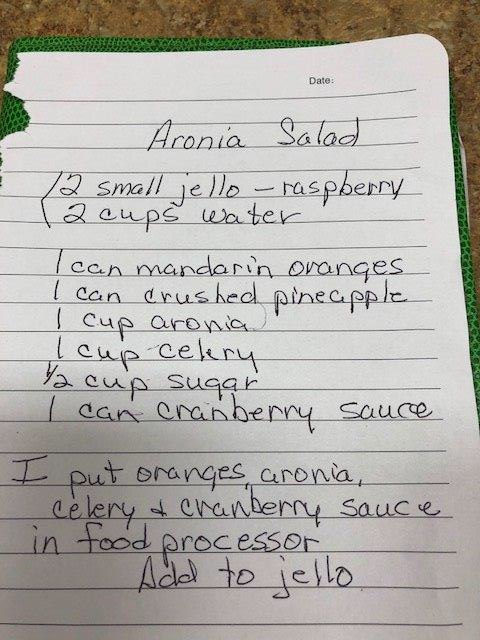 Date:
Aronia Salad
2 small jello - raspberry
2 cups water
1 can mandarin oranges
1 can crushed pineapple
1 cup aronia
1 cup celery
1/2 cup sugar
1 can cranberry sauce
I put oranges, aronia,
celery & cranberry sauce
in food processor
Add to jello